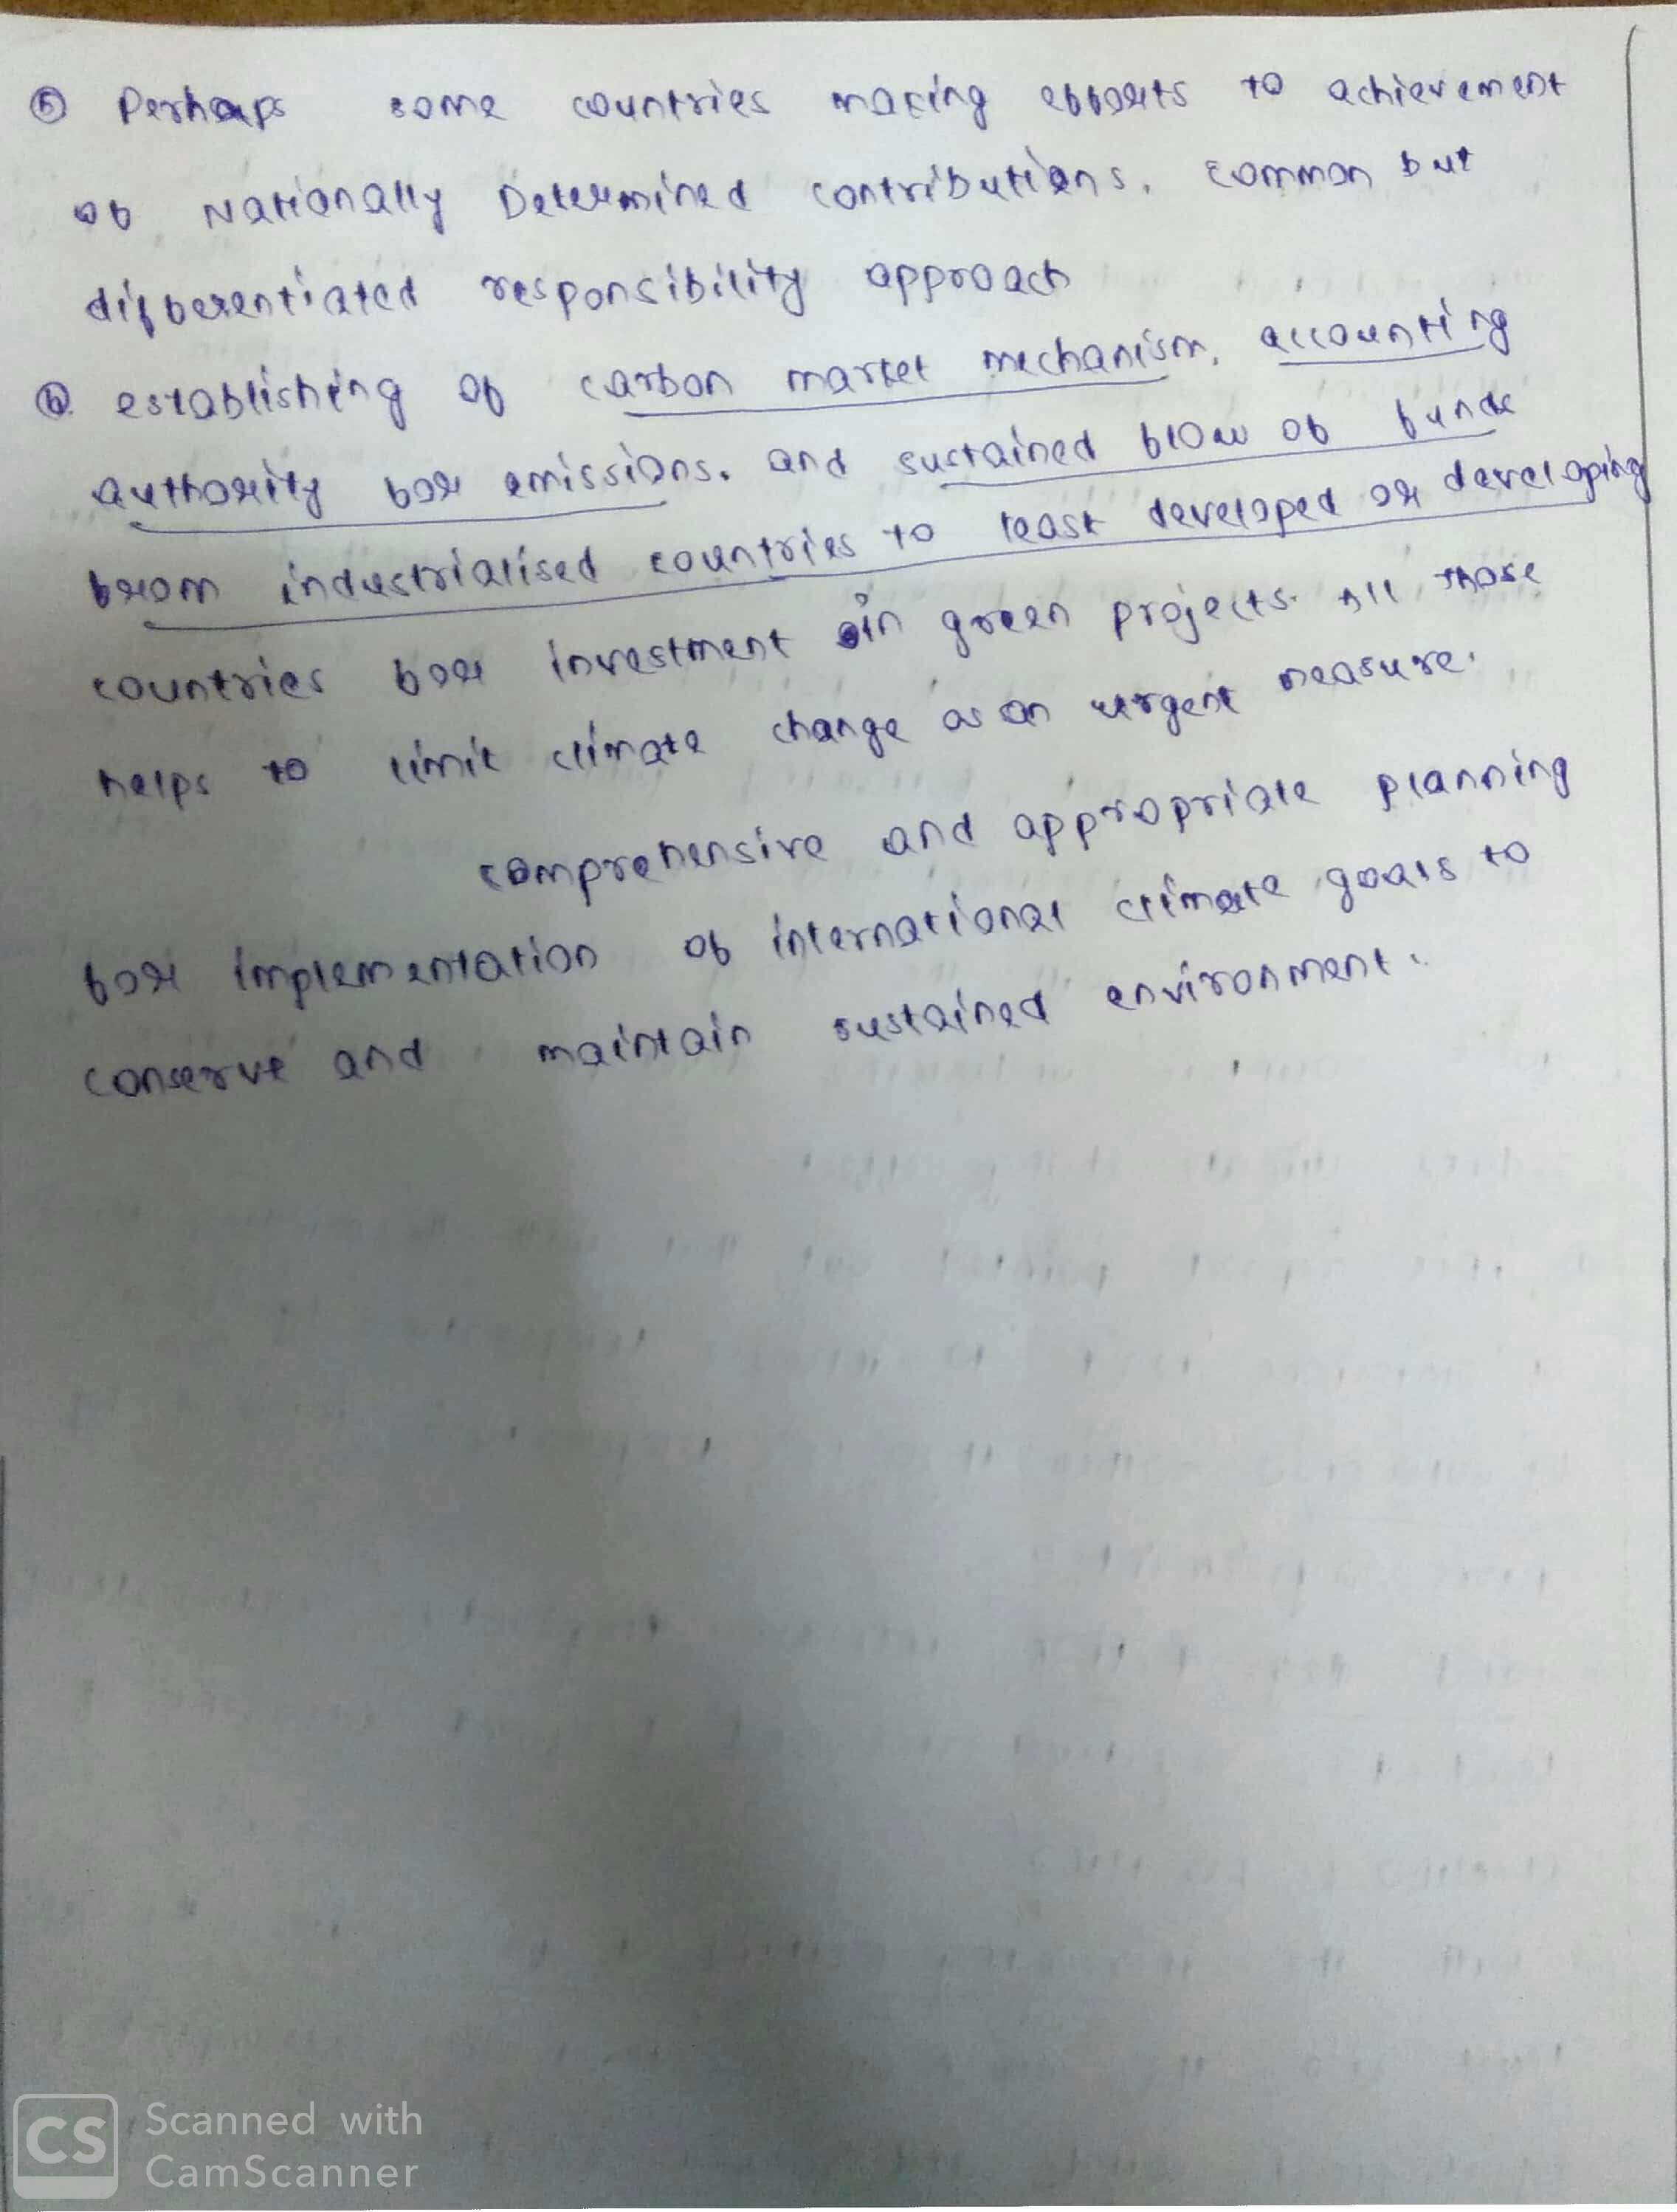 ⑤ Perhaps some countries making efforts to achievement
of Nationally Determined contributions, common but
differentiated responsibility approach
⑥ establishing of carbon market mechanism, accounting
authority for emissions, and sustained flow of funds
from industrialised countries to least developed or developing
countries for investment in green projects. All those
helps to limit climate change as an urgent measure.
comprehensive and appropriate planning
for implementation of international climate goals to
conserve and maintain sustained environment.
CS Scanned with
CamScanner